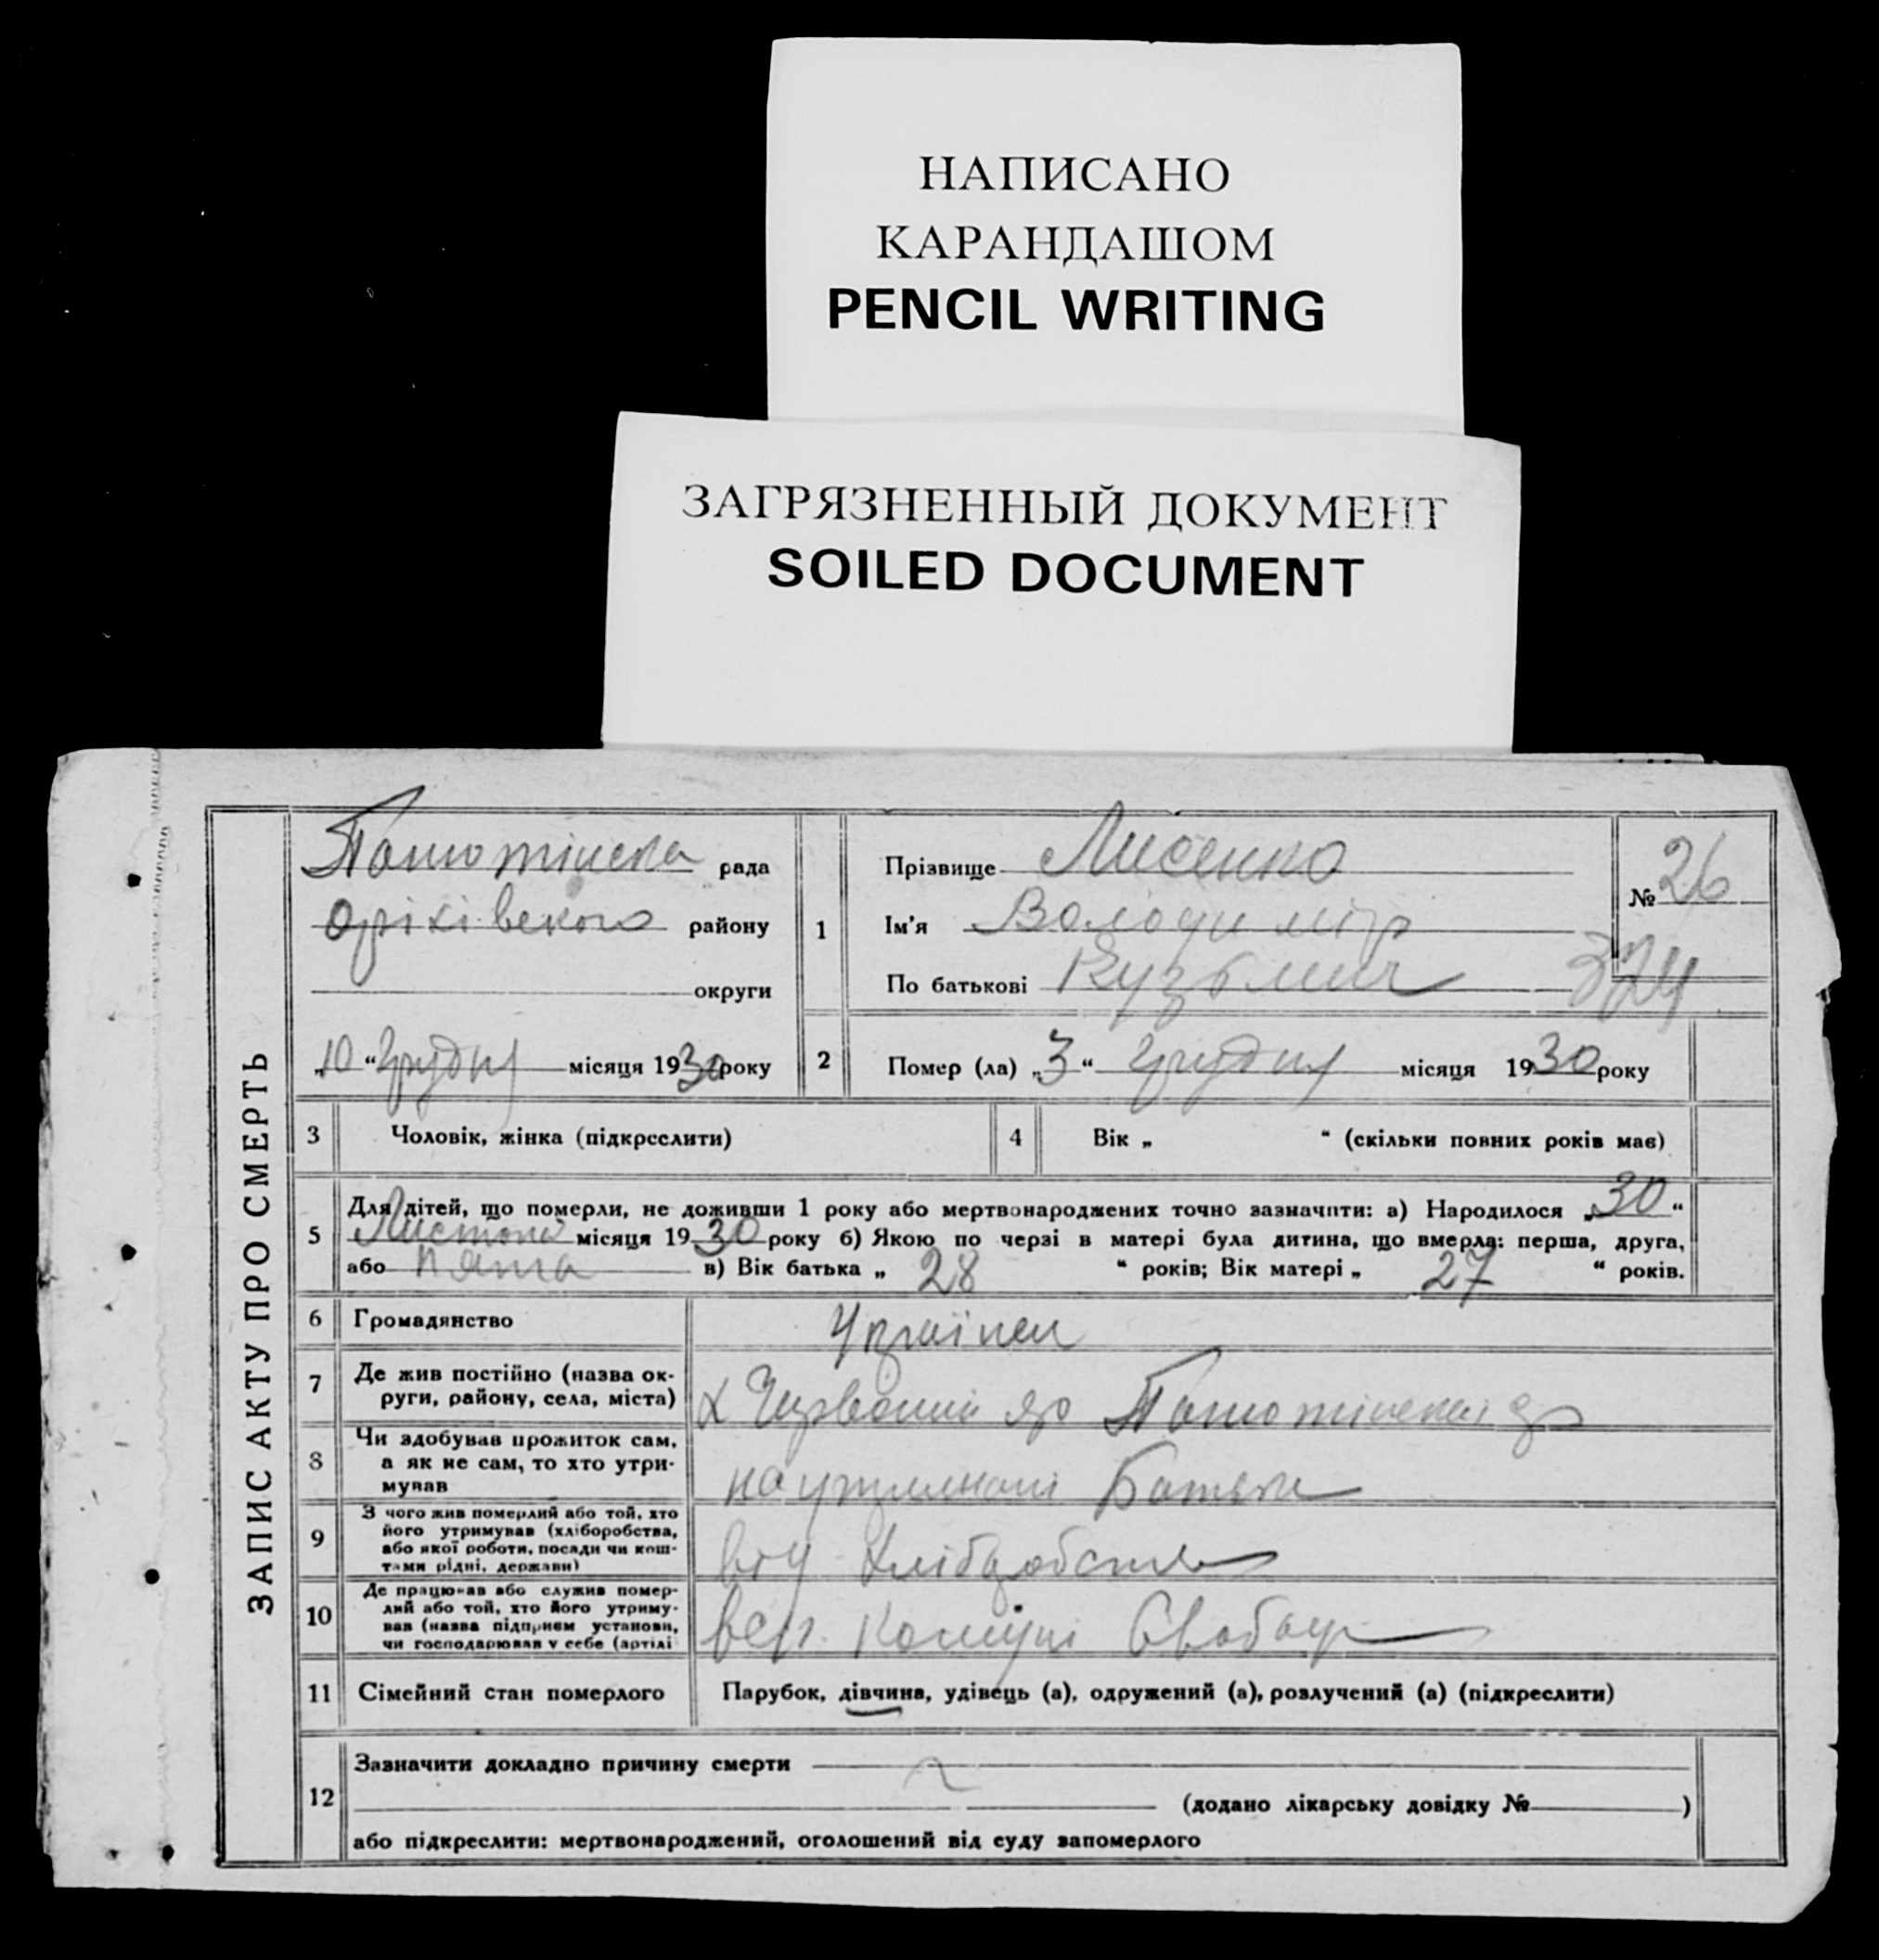 НАПИСАНО
КАРАНДАШОМ
PENCIL WRITING
ЗАГРЯЗНЕННЫЙ ДОКУМЕНТ
SOILED DOCUMENT
ЗАПИС АКТУ ПРО СМЕРТЬ
рада
Оріхівского району
округи
„10“ Грудня місяця 1930 року
1
Прізвище Лисенко
Ім'я Володимір
По батькові Кузьмич
№ 26
324
2 Помер (ла) „3“ Грудня місяця 1930 року
3 Чоловік, жінка (підкреслити)
4 Вік „ “ (скільки повних років має)
5 Для дітей, що померли, не доживши 1 року або мертвонароджених точно зазначити: а) Народилося „30“
Листопад місяця 1930 року б) Якою по черзі в матері була дитина, що вмерла: перша, друга,
або пята в) Вік батька „ 28 “ років; Вік матері „ 27 “ років.
6 Громадянство Українец
7 Де жив постійно (назва ок-
руги, району, села, міста) х Червоний яр
8 Чи здобував прожиток сам,
а як не сам, то хто утри-
мував на утриманні Батька
9 З чого жив померлий або той, хто
його утримував (хліборобства,
або якої роботи, посади чи кош-
тами рідні, держави) від Хліборобства
10 Де працював або служив помер-
лий або той, хто його утриму-
вав (назва підприєм установи,
чи господарював у себе (артілі Комуні Свобода
11 Сімейний стан померлого Парубок, дівчина, удівець (а), одружений (а), розлучений (а) (підкреслити)
12 Зазначити докладно причину смерти
(додано лікарську довідку № )
або підкреслити: мертвонароджений, оголошений від суду запомерлого